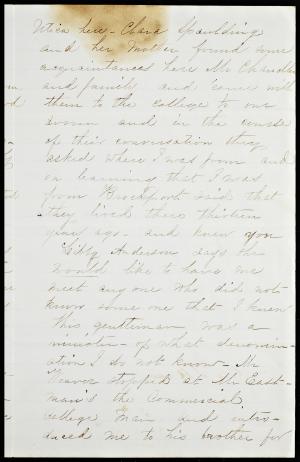 Utica here - Clara Spaulding
and her Mother found some
acquaintances here Mr Chandler
and family and came with
them to the College to our
room and in the course
of their conversation they
asked where I was from and
on learning that I was
from Brockport said that
they lived there thirteen
years ago - and knew you
Libby Anderson says she
would like to have me
meet any one who did not
know some one that I knew
This gentleman was a
minister - of what denomin-
ation I do not know - Mr
Weaver stopped at Mr East-
man's the Commercial
college man and intro-
duced me to his brother for